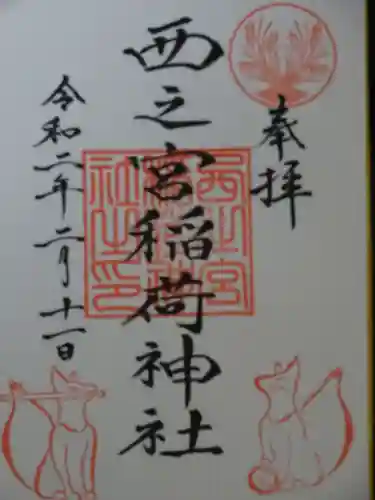 奉拝
西之宮稲荷神社
令和二年二月十一日